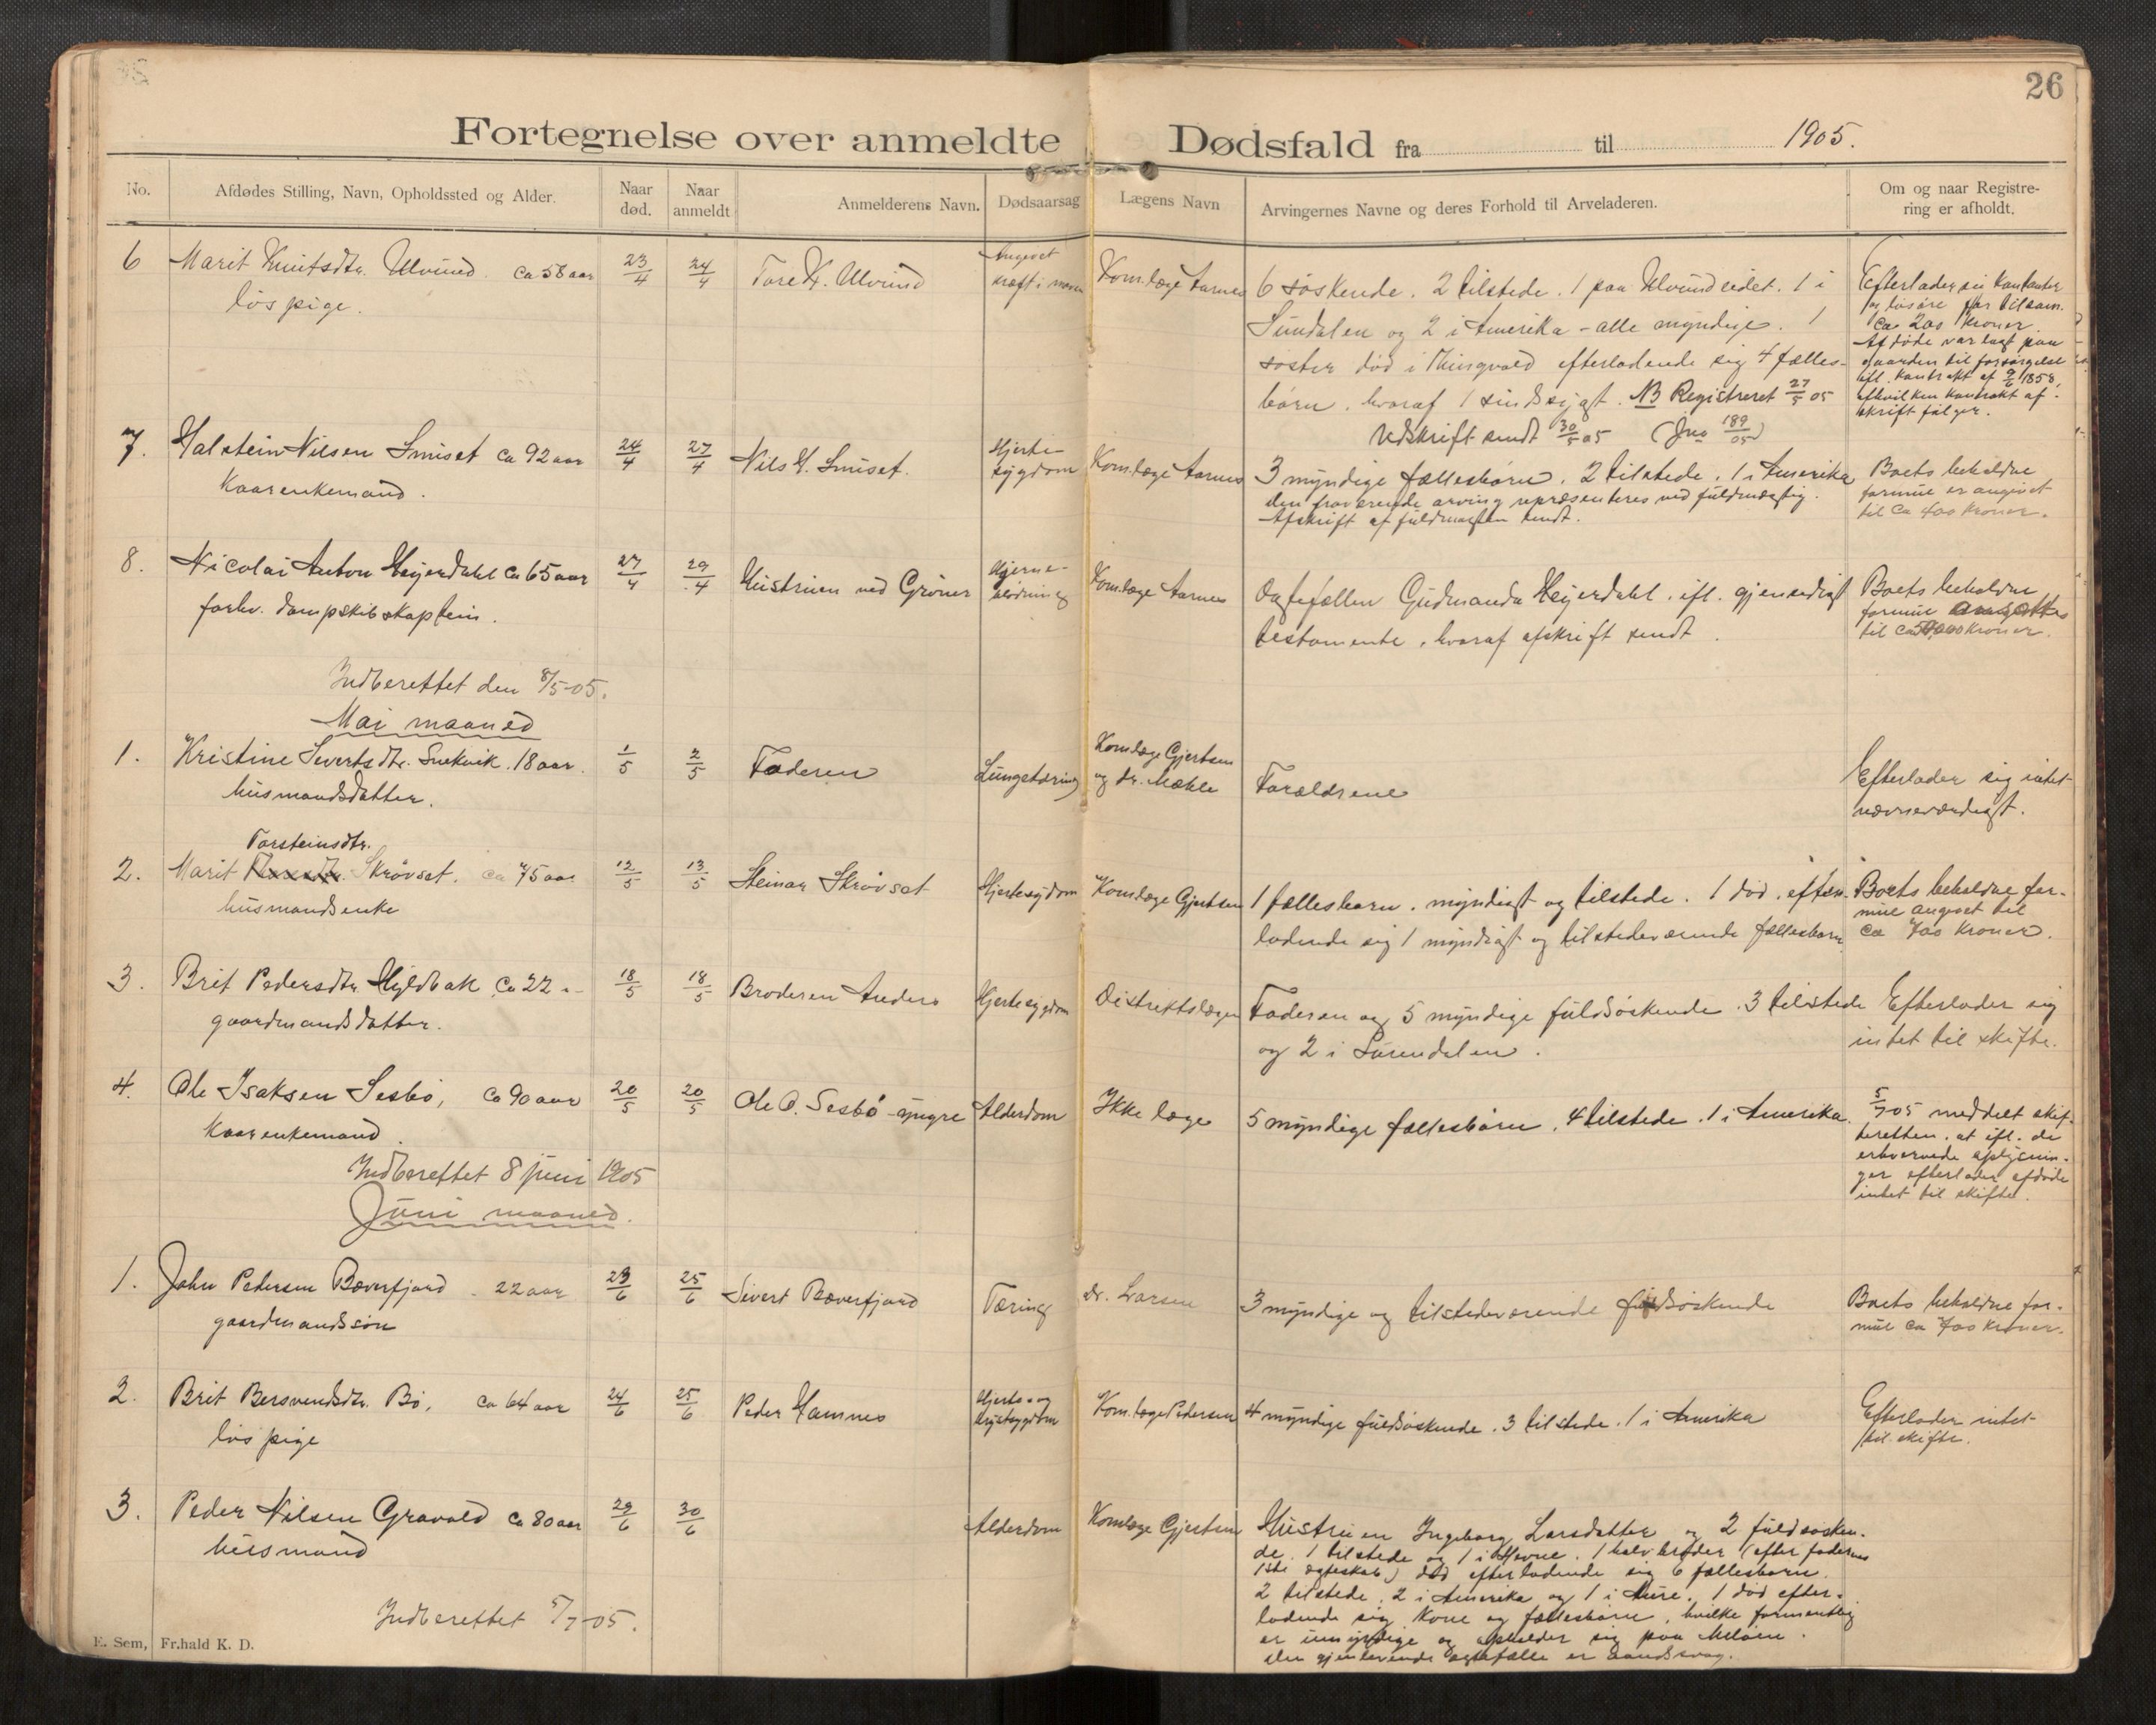 26
Fortegnelse over anmeldte Dødsfald fra til 1905.
No. Afdødes Stilling, Navn, Opholdssted og Alder. Naar død. Naar anmeldt Anmelderens Navn. Dødsaarsag Lægens Navn Arvingernes Navne og deres Forhold til Arveladeren. Om og naar Registrering er afholdt.
6 Marit Knutsdtr. Ulvund. ca 58 aar 23/4 24/4 Tore K. Ulvund Angivet kræft i maven Kom.læge Aarnes
løs pige.
6 søskende. 2 tilstede. 1 paa Ulvundeidet. 1 i
Sundalen og 2 i Amerika - alle myndige. 1
søster død i Thingvold efterladende sig 4 fælles-
børn, hvoraf 1 sindssygt. NB Registreret 27/5 05
Udskrift sendt 30/5 05 (Jno 189/05)
Efterlader sig kontanter
og løsøre for tilsam.
ca 200 kroner.
Afdøde var lagt paa
gaarden til forsørgelse
ifl. kontrakt af 9/6 1858,
af hvilken kontrakt af-
skrift følger.
7. Halstein Nilsen Smiset ca 92 aar 24/4 27/4 Nils H. Smiset. Hjerte-
sygdom Kom.læge Aarnes
Kaarenkemand.
3 myndige fællesbørn. 2 tilstede. 1 i Amerika
den fraværende arving repræsenteres ved fuldmægtig.
Afskrift af fuldmagten sendt.
Boets beholdne
formue er angivet
til ca 400 kroner.
8. Nicolai Anton Heyerdahl ca 65 aar 27/4 29/4 Hustruen ved Grøner Hjerne-
blødning Kom.læge Aarnes
forhv. dampskibskaptein.
Ægtefællen Gudmanda Heyerdahl. ifl. gjensidigt
testamente, hvoraf afskrift sendt.
Boets beholdne
formue ansættes
til ca kroner.
Indberettet den 8/5-05.
Mai maaned
1. Kristine Sivertsdtr. Snekvik. 18 aar. 1/5 2/5 Faderen Lungetæring Kom.læge Gjertsen
og dr. Mæhle Forældrene
husmandsdatter.
Efterlader sig intet
nævneværdigt.
Torsteinsdtr.
2. Marit Skrøvset. ca 75 aar 12/5 13/5 Steinar Skrøvset Hjertesygdom Kom.læge Gjertsen
husmandsenke
1 fællesbarn. myndigt og tilstede. 1 død, efter-
ladende sig 1 myndigt og tilstedeværende fællesbarn
Boets beholdne for-
mue angivet til
ca 700 kroner.
3. Brit Pedersdtr. Hyldbak ca 22 " 18/5 18/5 Broderen Anders Hjertesygdom Distriktslægen
gaardmandsdatter.
Faderen og 5 myndige fuldsøskende. 3 tilstede
og 2 i Surendalen.
Efterlader sig
intet til skifte.
4. Ole Isaksen Sesbø, ca 90 aar 20/5 20/5 Ole O. Sesbø - yngre Alderdom Ikke læge
Kaarenkemand.
5 myndige fællesbørn. 4 tilstede. 1 i Amerika.
5/7 05 meddelt skif-
teretten, at ifl. de
erhvervede oplysnin-
ger efterlader afdøde
intet til skifte.
Indberettet 8 juni 1905
Juni maaned.
1. John Pedersen Bæverfjord. 22 aar 23/6 25/6 Sivert Bæverfjord Tæring Dr. Larsen
gaardmandssøn
3 myndige og tilstedeværende fuldsøskende
Boets beholdne for-
mue ca 700 kroner.
2. Brit Bersvendsdtr. Bø, ca 64 aar 24/6 25/6 Peder Hamnes Hjerte- og
Brystsygdom Kom.læge Pedersen
løs pige
4 myndige fuldsøskende. 3 tilstede. 1 i Amerika
Efterlader intet
til skifte.
3. Peder Nilsen Gravold ca 80 aar 29/6 30/6 Alderdom Kom.læge Gjertsen
husmand
Hustruen Ingeborg Larsdatter og 2 fuldsøsken-
de. 1 tilstede og 1 i Hevne. 1 halvbroder (efter faderens
1ste ægteskab) død efterladende sig 6 fællesbørn.
2 tilstede, 2 i Amerika og 1 i Aure. 1 død efter-
ladende sig kone og fællesbørn, hvilke formentlig
er umyndige og opholder sig paa Meløen.
den gjenlevende ægtefælle er aandssvag.
Indberettet 5/7-05.
E. Sem, Fr.hald K. D.